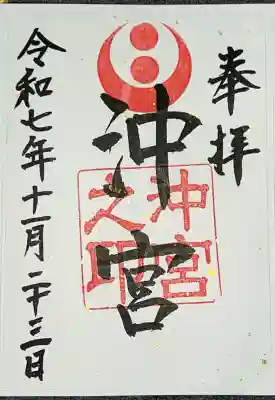 奉拝
沖宮
沖宮
之印
令和七年十一月二十三日